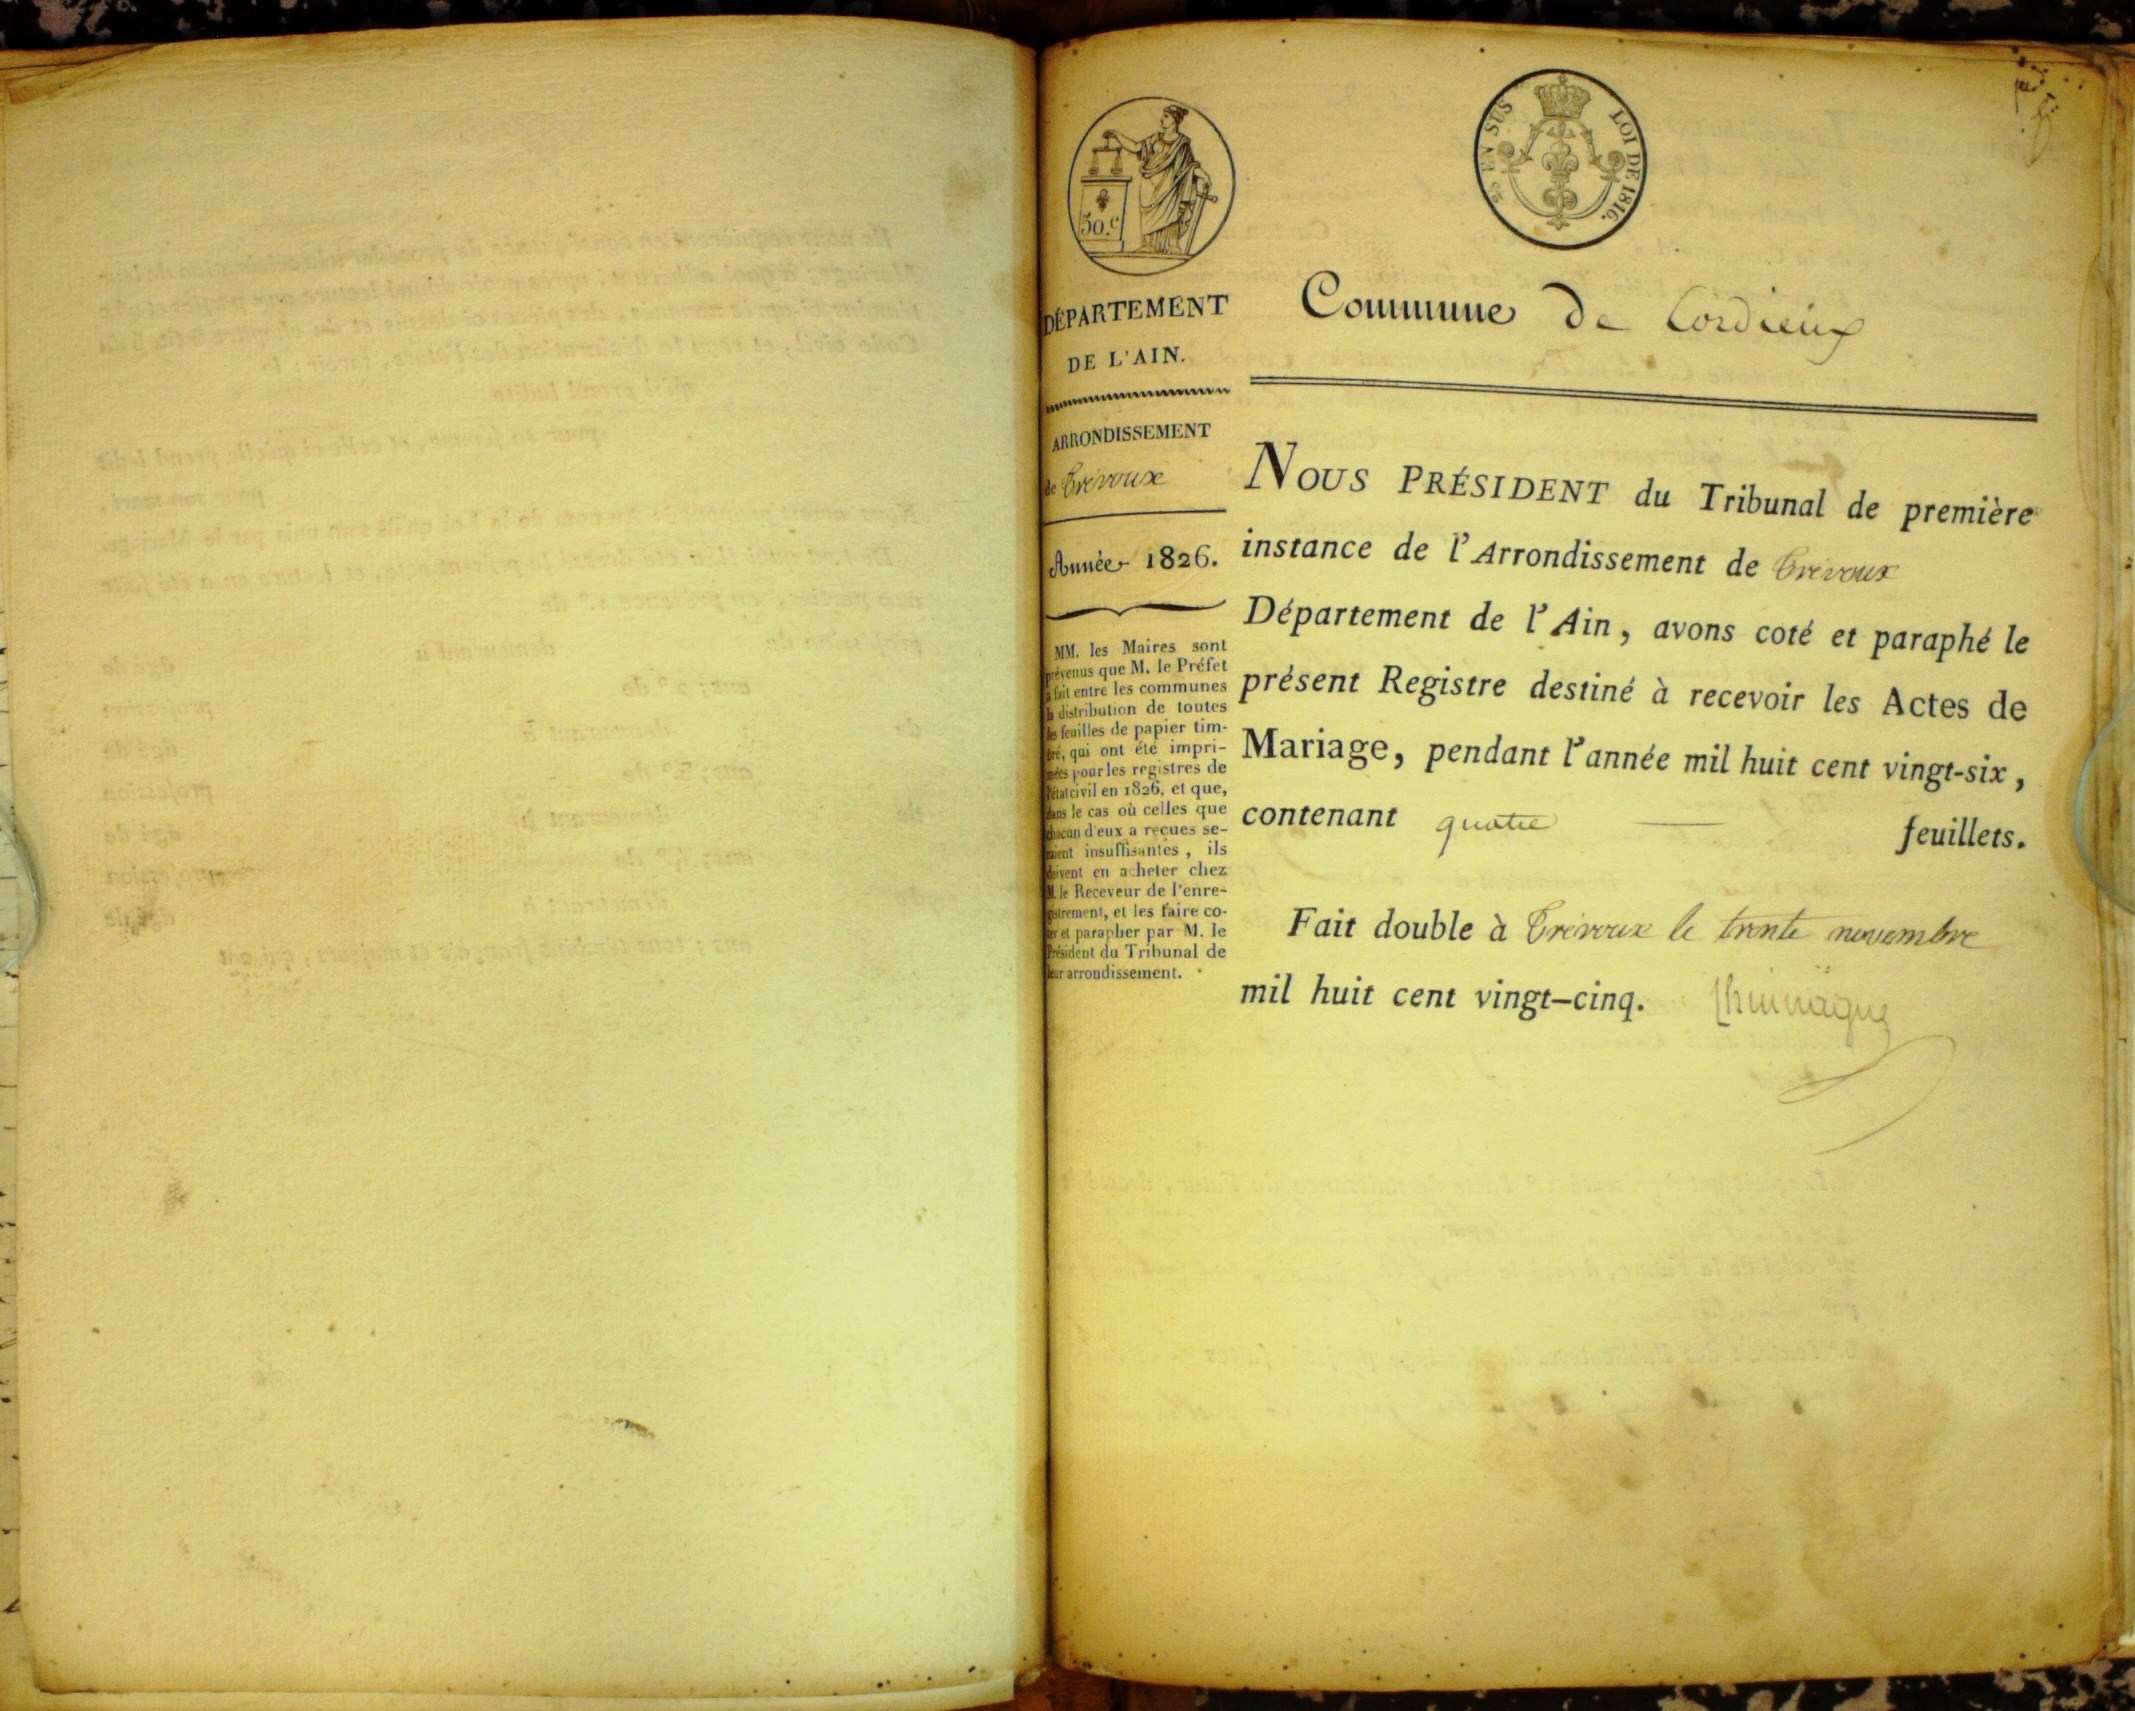 EN SUS
LOI DE 1816.
50.c
DÉPARTEMENT
DE L'AIN.
ARRONDISSEMENT
de Trévoux
Année 1826.
MM. les Maires sont
prévenus que M. le Préfet
a fait entre les communes
la distribution de toutes
les feuilles de papier tim-
bré, qui ont été impri-
mées pour les registres de
l'état civil en 1826, et que,
dans le cas où celles que
chacun d'eux a reçues se-
raient insuffisantes, ils
doivent en acheter chez
M. le Receveur de l'enre-
gistrement, et les faire co-
ter et parapher par M. le
Président du Tribunal de
leur arrondissement.
Commune de Cordieux
NOUS PRÉSIDENT du Tribunal de première
instance de l'Arrondissement de Trévoux
Département de l'Ain, avons coté et paraphé le
présent Registre destiné à recevoir les Actes de
Mariage, pendant l'année mil huit cent vingt-six,
contenant quatre feuillets.
Fait double à Trévoux le trente novembre
mil huit cent vingt-cinq.